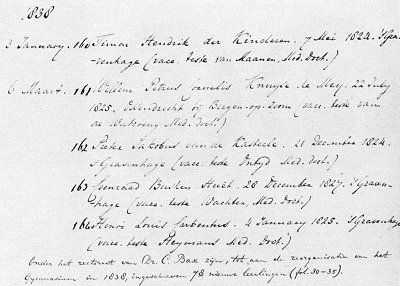 1838
3 January. 160 Timon Hendrik der Kinderen. 7 Mei 1824. 's Graven-
venhage (vacc. teste van Maanen, Med. Doct.)
6 Maart. 161 Willem Petrus Cornelis Knuyse de Mey. 22 July
1825. bij Bergen-op-Zoom (vacc. teste van
de Med. Doct.)
162 Pieter Jacobus van de Kasteele. 21 December 1824.
's Gravenhage (vacc. teste Med. Doct.)
163 Coenraad Busken Huët. 28 December 1827. 's Graven-
hage (vacc. teste Wachter, Med. Doct.)
164 Henri Louis Carbentus. 4 January 1825. 's Gravenhage
(vacc. teste Heymans Med. Doct.)
Onder het rectoraat van Dr. C. Bax zijn, tot aan de reorganisatie van het
Gymnasium in 1838, ingeschreven 78 nieuwe leerlingen (fol. 30-35).